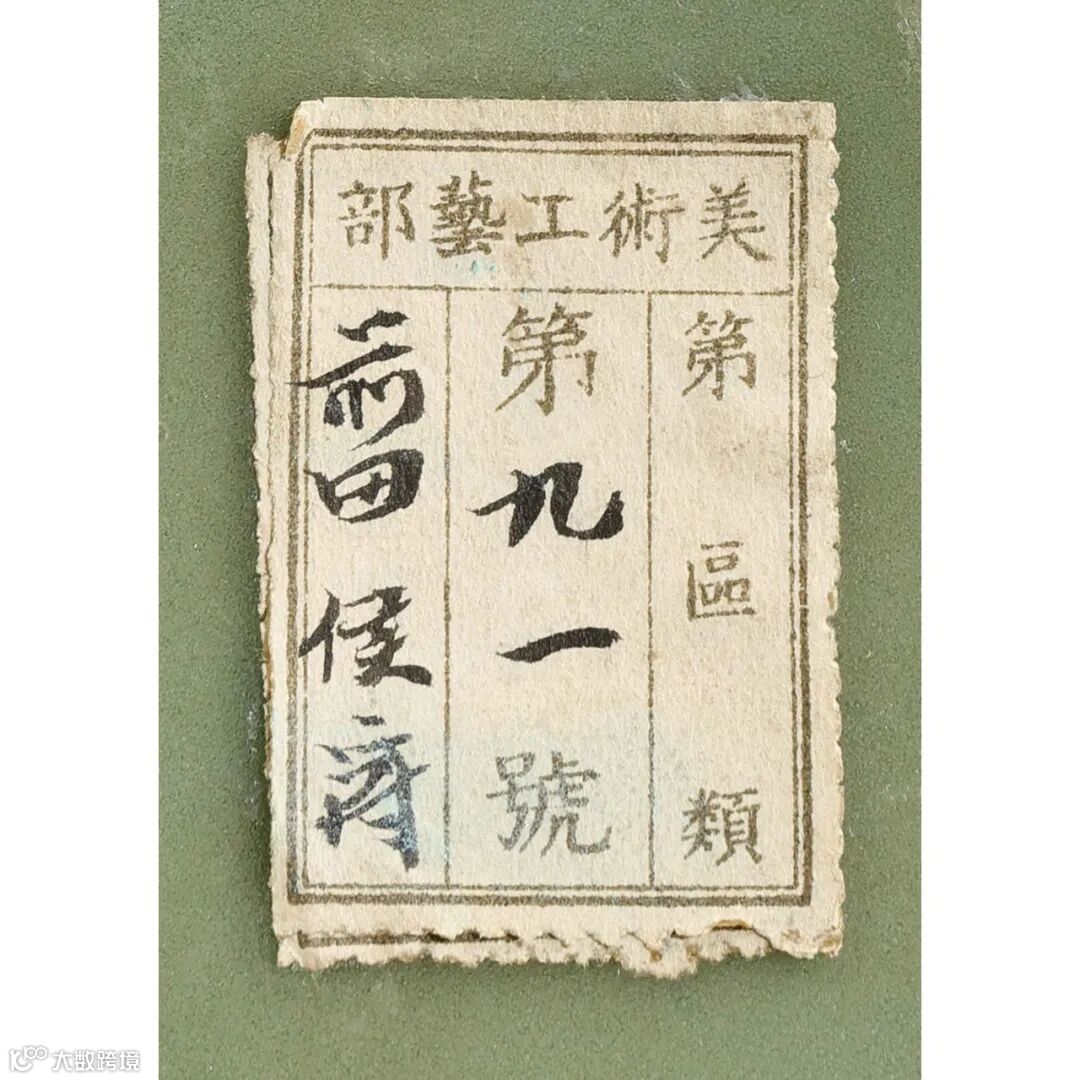 美術工藝部
第區類
第九一號
前田侯爵
大数跨境